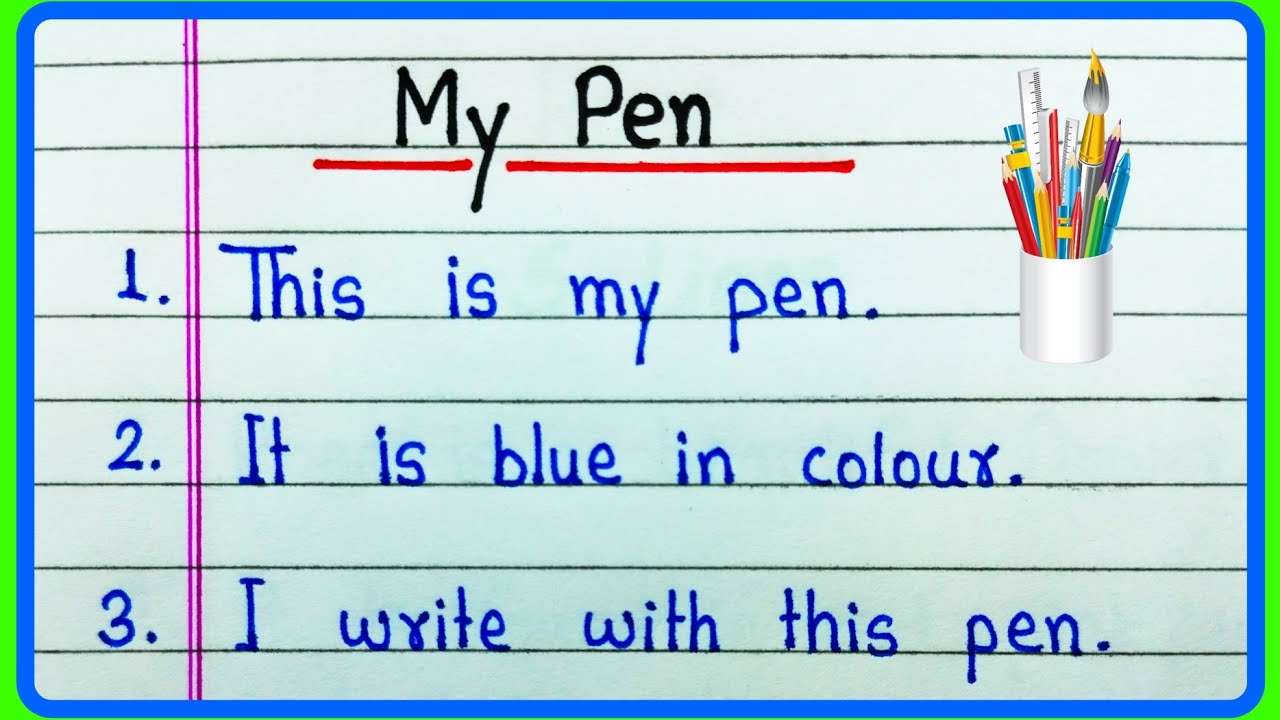 My Pen
1. This is my pen.
2. It is blue in colour.
3. I write with this pen.